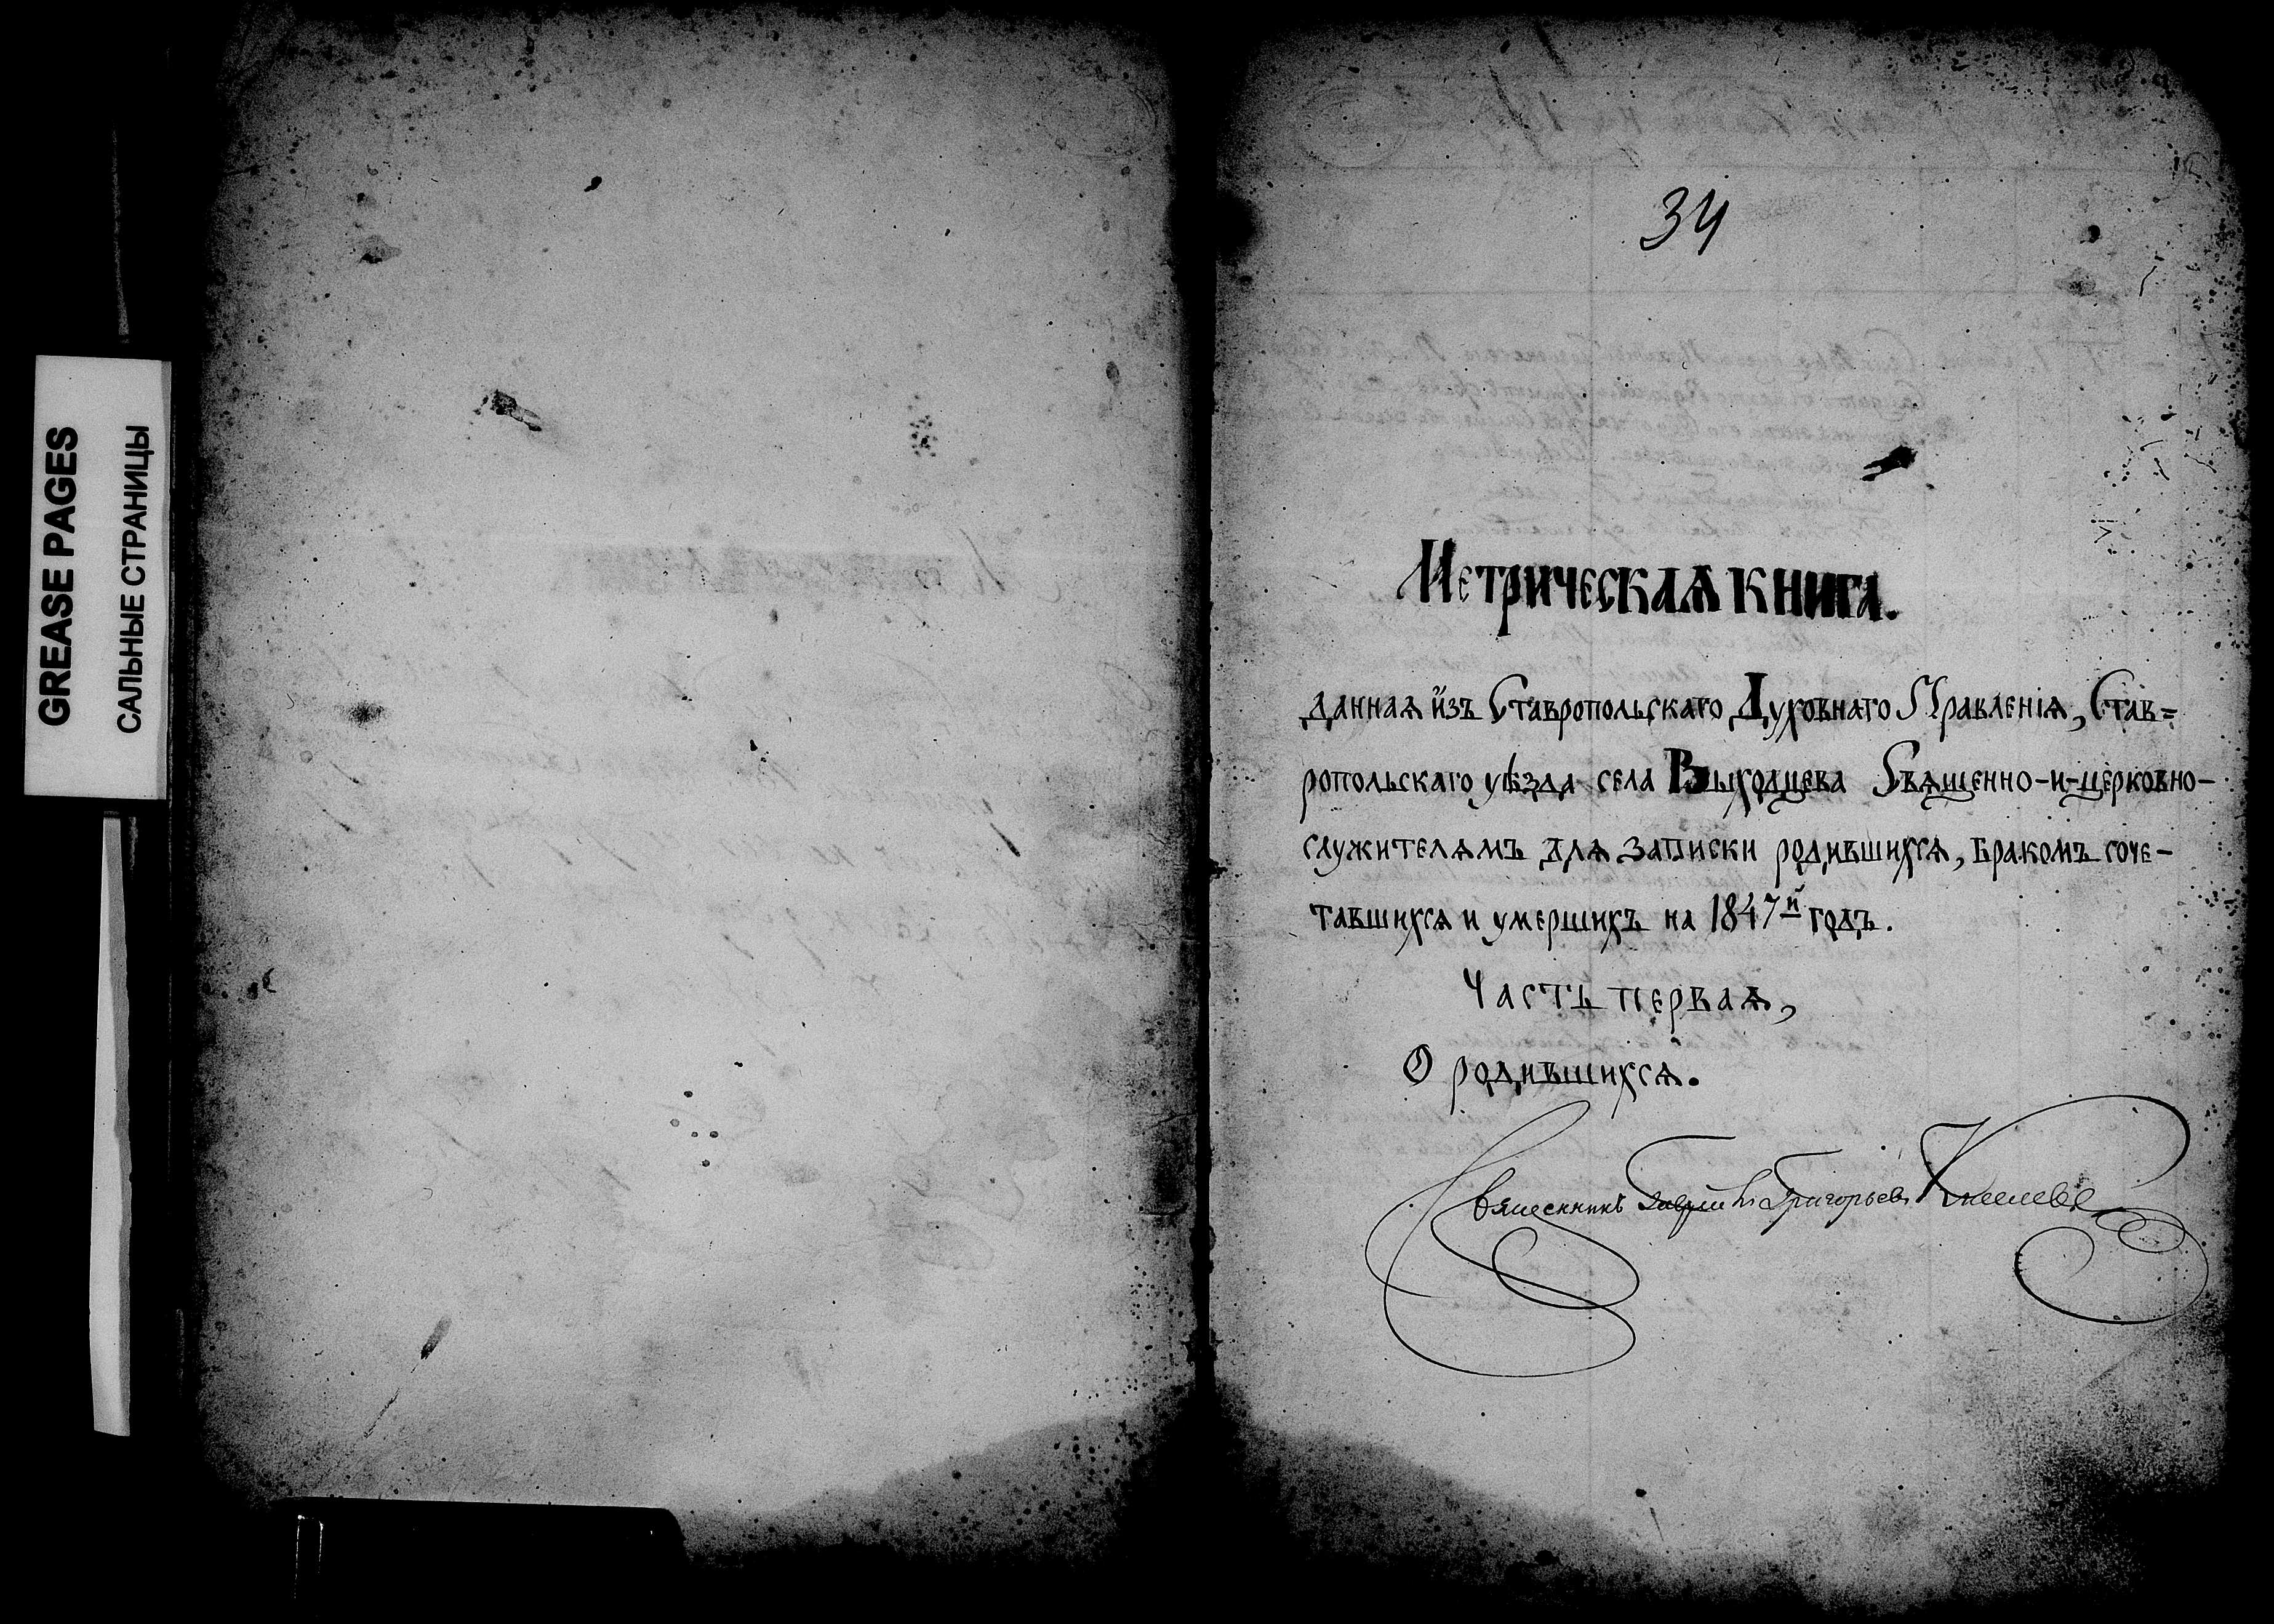 GREASE PAGES
САЛЬНЫЕ СТРАНИЦЫ
34
Метрическая книга.
данная изъ Ставропольскаго Духовнаго Правленія, Став=
ропольскаго уѣзда села Выходцева Священно-и-церковно-
служителямъ для записки родившихся, бракомъ соче-
тавшихся и умершихъ на 1847й годъ.
Часть первая,
О родившихся.
Священникъ Григорьевъ Киселевъ